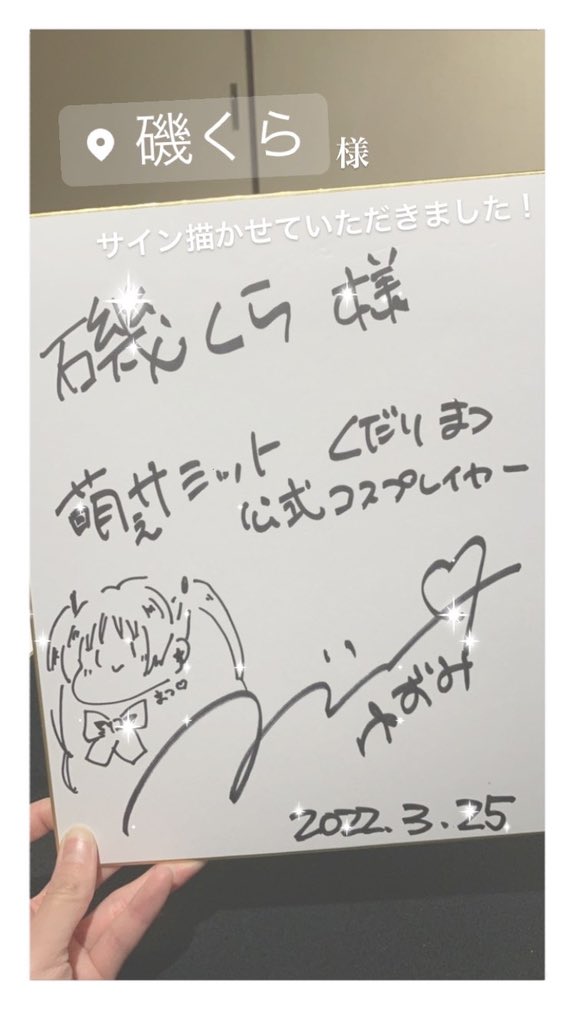 磯くら 様
サイン描かせていただきました！
磯くら 様
萌えサミット くだりまつ
公式コスプレイヤー
まつ♡
なおみ
2022.3.25